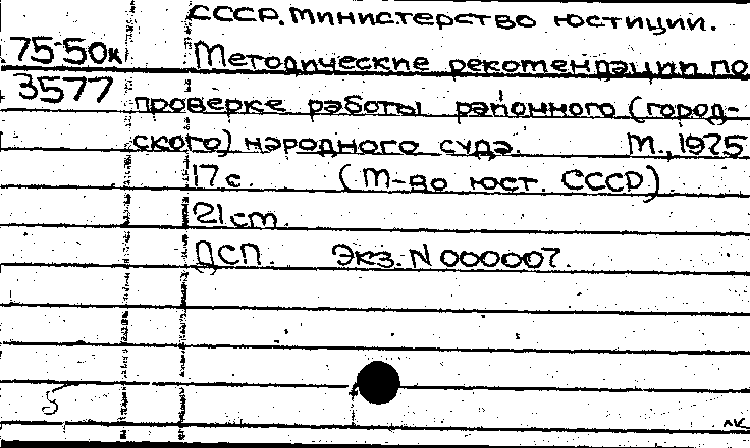 СССР. Министерство юстиции.
75-50к Методические рекомендации по
3577 проверке работы районного (город-
ского) народного суда. М., 1975
17 с. (М-во юст. СССР)
21 см.
ДСП. Экз. N 000007.
5
лк